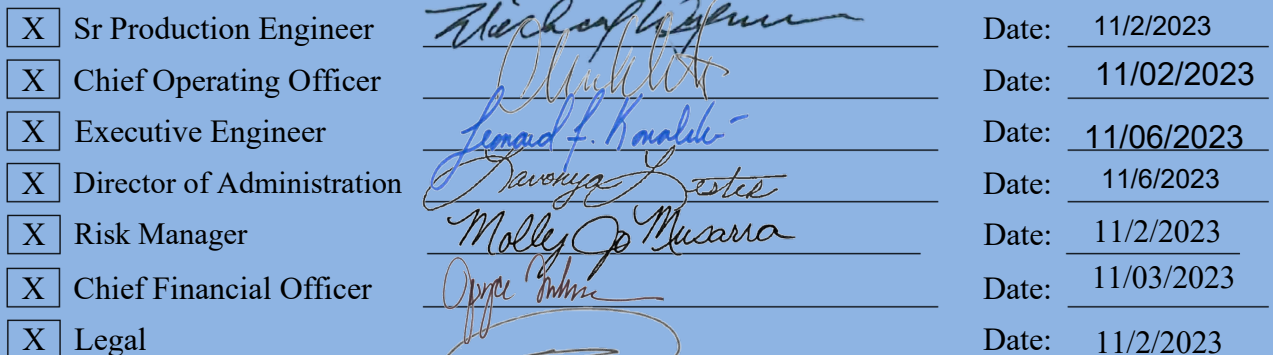 X Sr Production Engineer Date: 11/2/2023
X Chief Operating Officer Date: 11/02/2023
X Executive Engineer Leonard F. Konalski Date: 11/06/2023
X Director of Administration Lavonya Lester Date: 11/6/2023
X Risk Manager Molly Jo Musarra Date: 11/2/2023
X Chief Financial Officer Joyce Date: 11/03/2023
X Legal Date: 11/2/2023